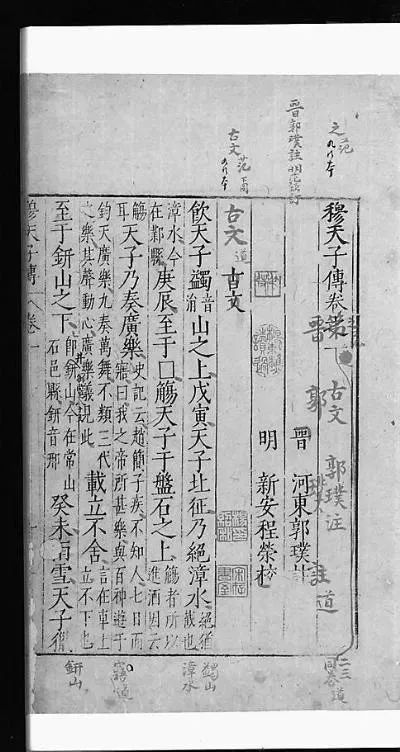 穆天子傳卷第一
古文 郭璞注
晉 郭 璞 註 道
晉 河東郭璞註
明 新安程榮校
古文 道 古文
飲天子蠲音涓山之上戊寅天子北征乃絕漳水絕猶截也
漳水今在鄴縣庚辰至于口觴天子于盤石之上觴者所以進酒因云
觴耳天子乃奏廣樂史記云趙簡子疾不知人七日而寤曰我之帝所甚樂與百神遊于
鈞天廣樂九奏萬舞不類三代之樂其聲動心廣樂義見此載立不舍言在車上立不下也
至于鈃山之下即鈃山今在常山石邑縣鈃音邢癸未雨雪天子獵
穆天子傳 卷一
之 范
晉郭璞註
古文 范
二三
蠲山
漳水
寤 道
鈃山